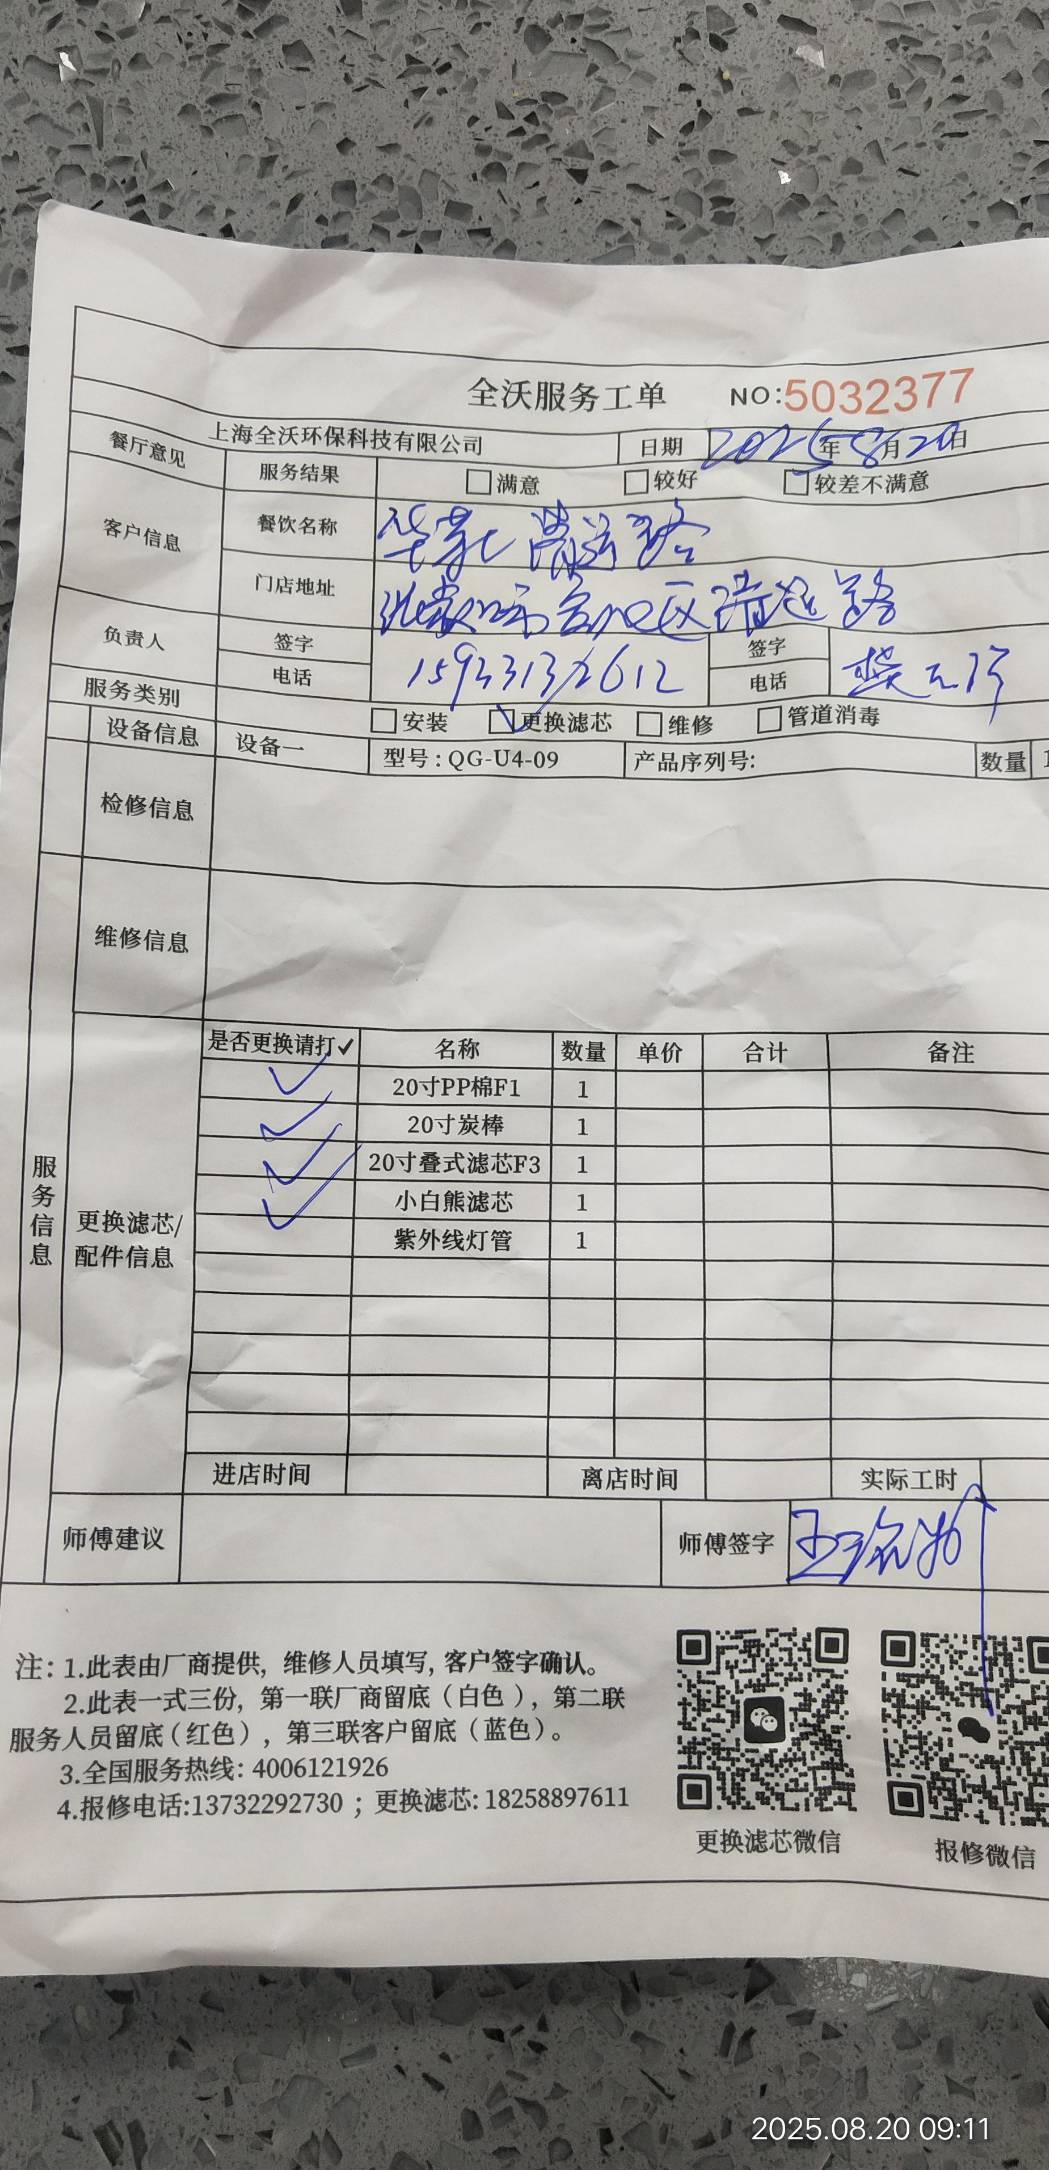 全沃服务工单 NO:5032377
上海全沃环保科技有限公司 日期 2025年8月20日
餐厅意见 服务结果 满意 较好 较差不满意
客户信息 餐饮名称 路
门店地址 区 路
负责人 签字 签字
电话 电话
服务类别 安装 更换滤芯 维修 管道消毒
设备信息 设备一 型号:QG-U4-09 产品序列号: 数量 1
检修信息
维修信息
服务信息
更换滤芯/
配件信息
是否更换请打✓ 名称 数量 单价 合计 备注
✓ 20寸PP棉F1 1
✓ 20寸炭棒 1
✓ 20寸叠式滤芯F3 1
✓ 小白熊滤芯 1
紫外线灯管 1
进店时间 离店时间 实际工时
师傅建议 师傅签字 王
注: 1.此表由厂商提供, 维修人员填写, 客户签字确认。
2.此表一式三份, 第一联厂商留底(白色), 第二联
服务人员留底(红色), 第三联客户留底(蓝色)。
3.全国服务热线: 4006121926
4.报修电话:13732292730 ; 更换滤芯: 18258897611
更换滤芯微信 报修微信
2025.08.20 09:11